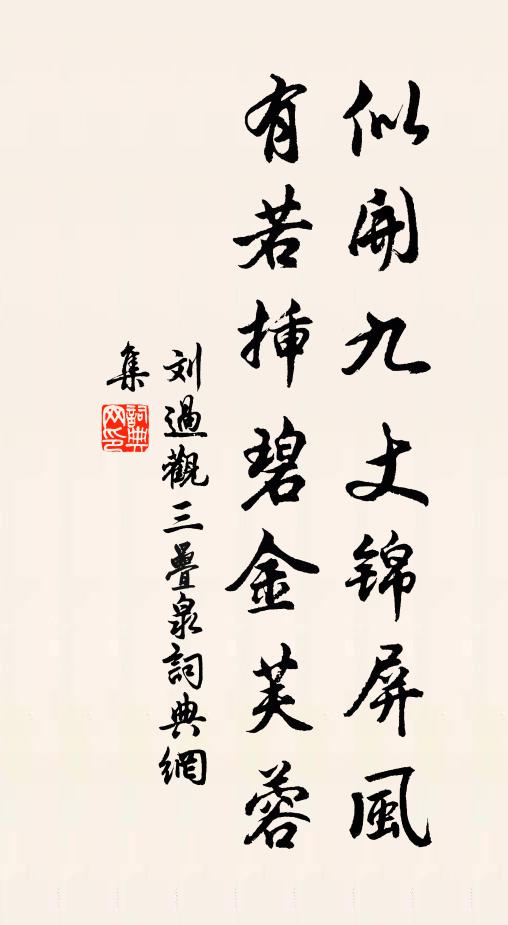 似開九丈锦屏風
有若挿碧金芙蓉
刘過觀三疊泉詞典網
集
詞典網印